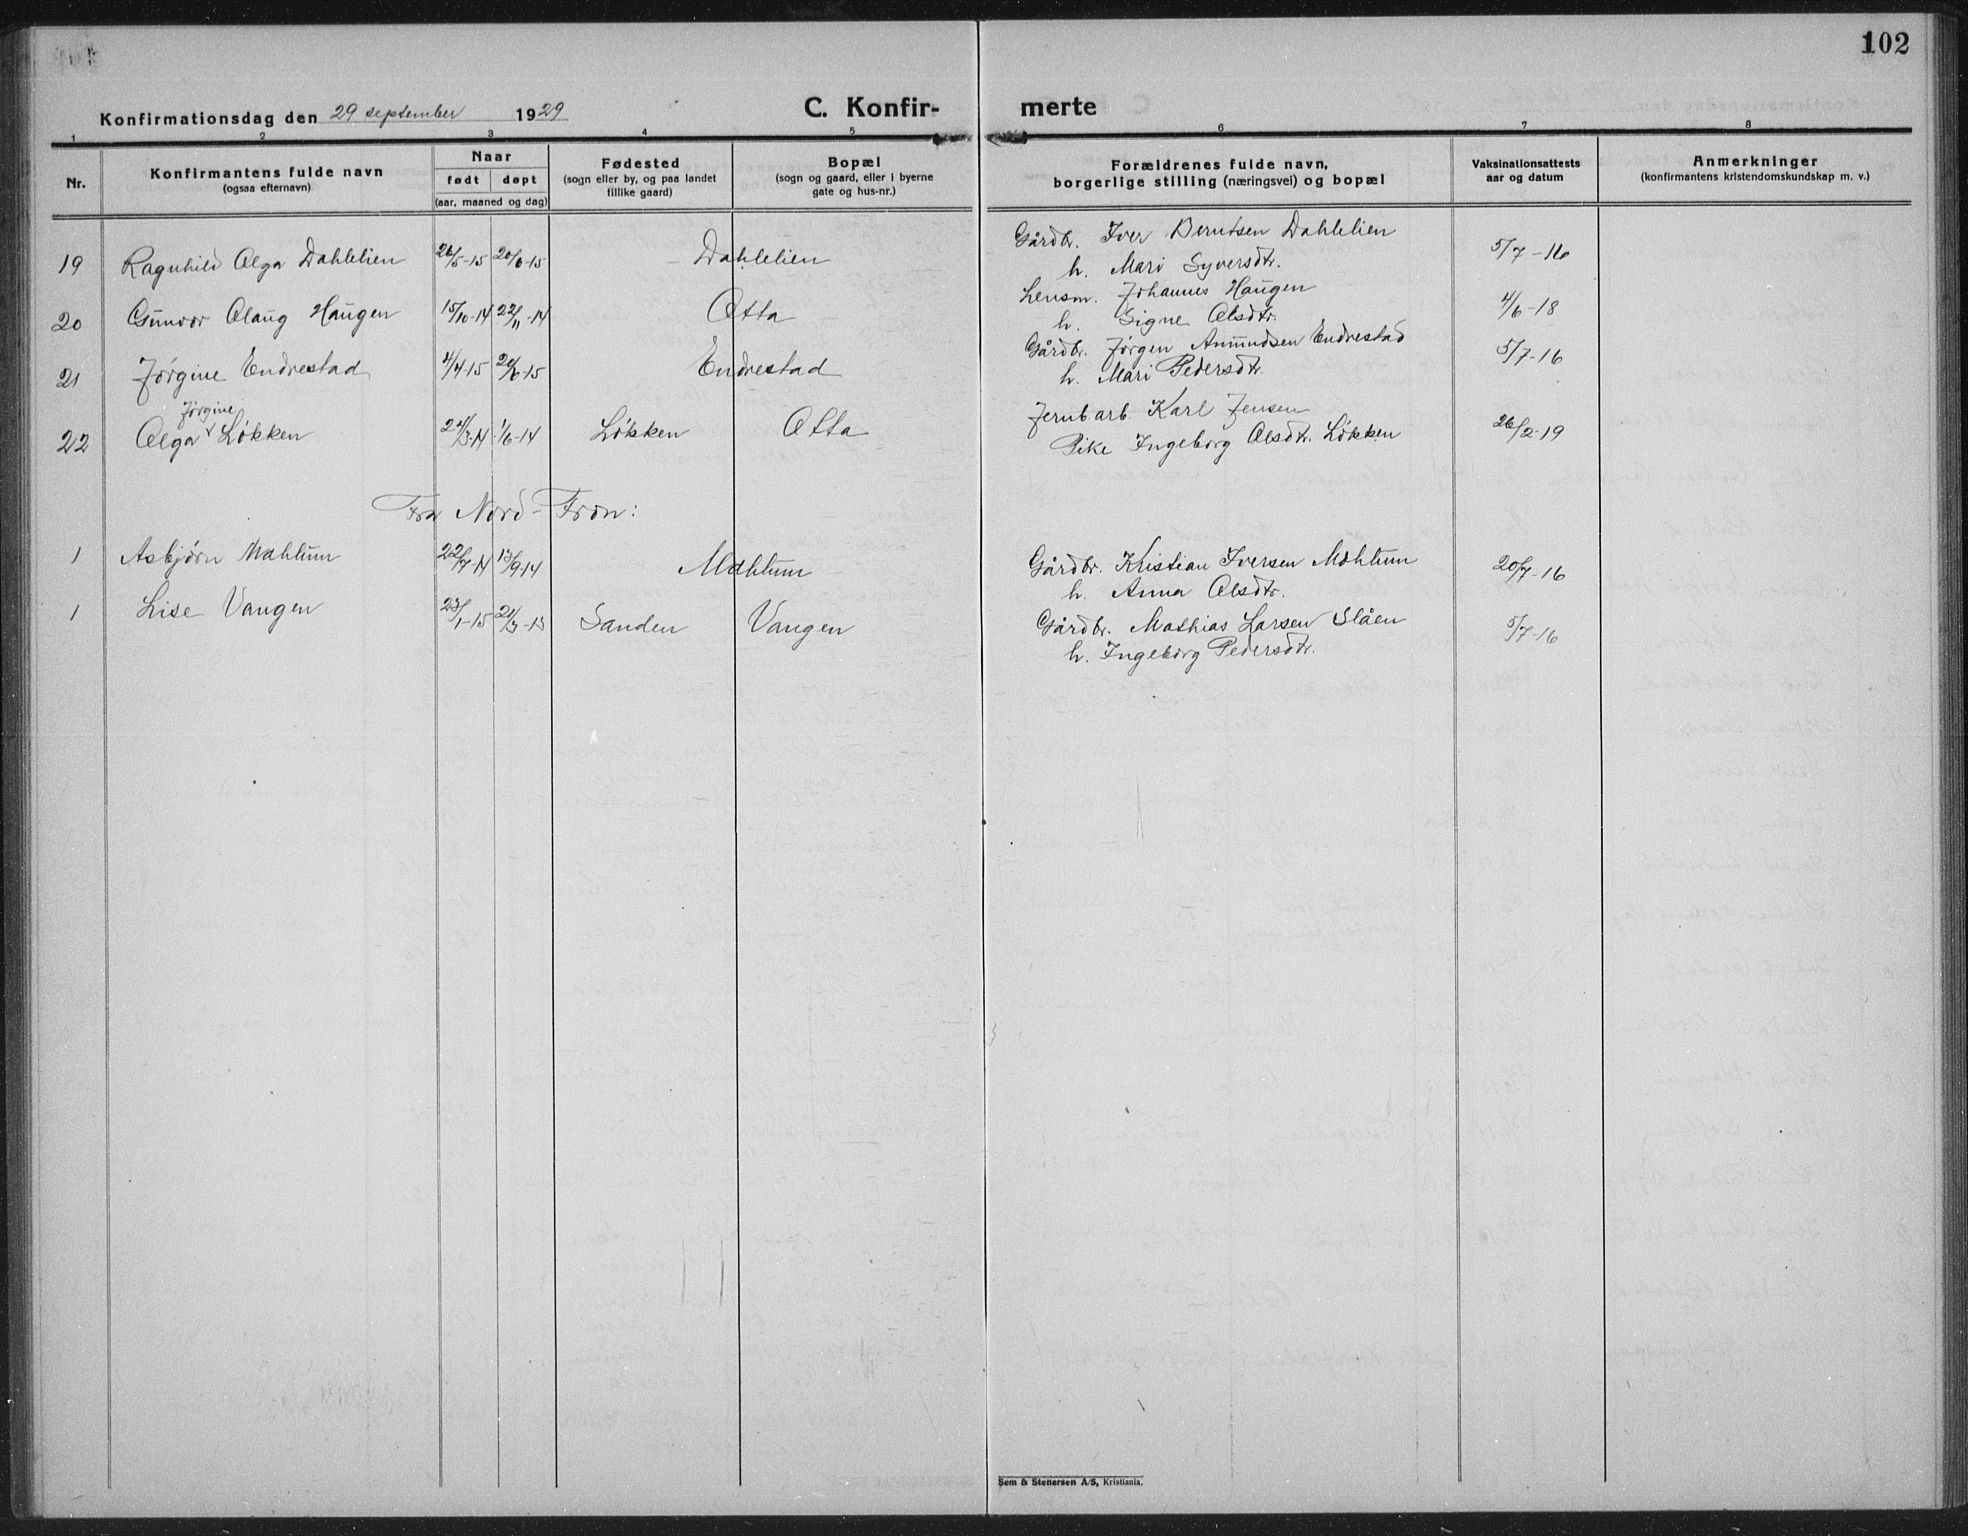 102
Konfirmationsdag den 29 september 1929
C. Konfir- merte
1 2 3 4 5 6 7 8
Nr.
Konfirmantens fulde navn
(ogsaa efternavn)
Naar
født døpt
(aar, maaned og dag)
Fødested
(sogn eller by, og paa landet
tillike gaard)
Bopæl
(sogn og gaard, eller i byerne
gate og hus-nr.)
Forældrenes fulde navn,
borgerlige stilling (næringsvei) og bopæl
Vaksinationsattests
aar og datum
Anmerkninger
(konfirmantens kristendomskundskap m. v.)
19 Ragnhild Olga Dahlelien 26/5-15 20/6-15 Dahlelien Gårdbr. Iver Berntsen Dahlelien 5/7-16
h. Mari Syversdtr.
20 Gunvor Olaug Haugen 15/10-14 22/11-14 Otta Lensm. Johannes Haugen 4/6-18
h. Signe Olsdtr.
21 Jørgine Endrestad 4/4-15 20/6-15 Endrestad Gårdbr. Jørgen Amundsen Endrestad 5/7-16
h. Mari Pedersdtr.
Jørgine
22 Olga Løkken 24/3-14 1/6-14 Løkken Otta Jernb arb. Karl Jensen 26/2-19
Pike Ingeborg Olsdtr. Løkken
Fra Nord-Fron:
1 Asbjørn Mahlum 22/7-14 13/9-14 Mahlum Gårdbr. Kristian Iversen Mahlum 20/7-16
h. Anna Olsdtr.
1 Lise Vangen 23/1-15 21/3-15 Sanden Vangen Gårdbr. Mathias Larsen Slåen 5/7-16
h. Ingeborg Pedersdtr.
Sem & Stenersen A/S, Kristiania.